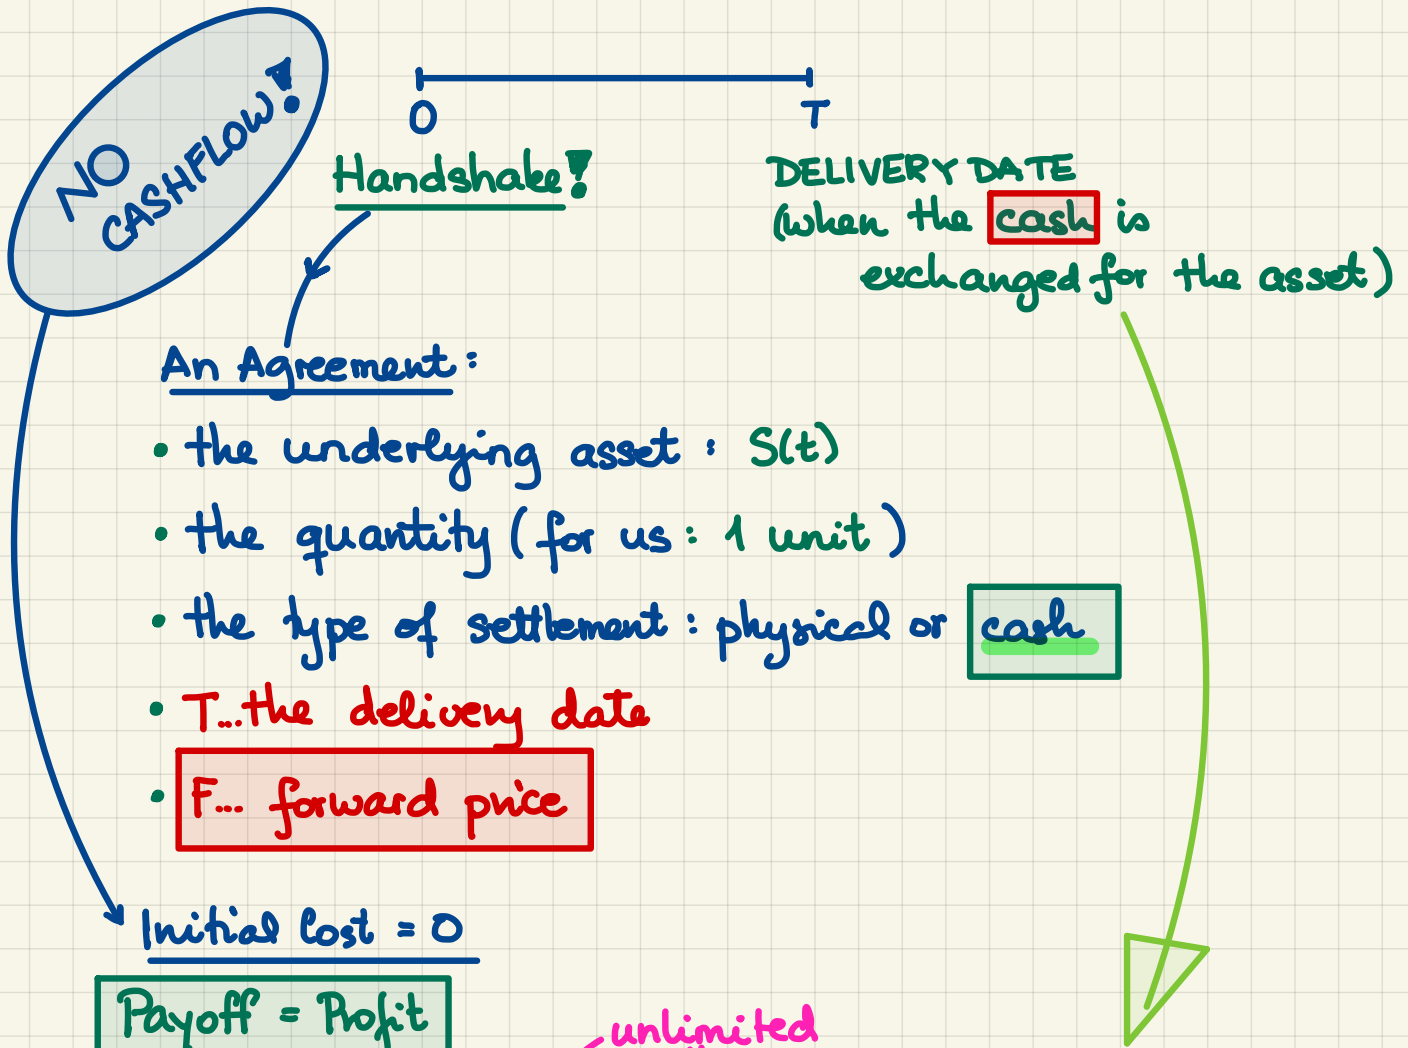 NO
CASHFLOW!
0 T
Handshake!
DELIVERY DATE
(when the cash is
exchanged for the asset)
An Agreement:
• the underlying asset : S(t)
• the quantity (for us : 1 unit)
• the type of settlement : physical or cash
• T...the delivery date
• F... forward price
Initial Cost = 0
Payoff = Profit
unlimited